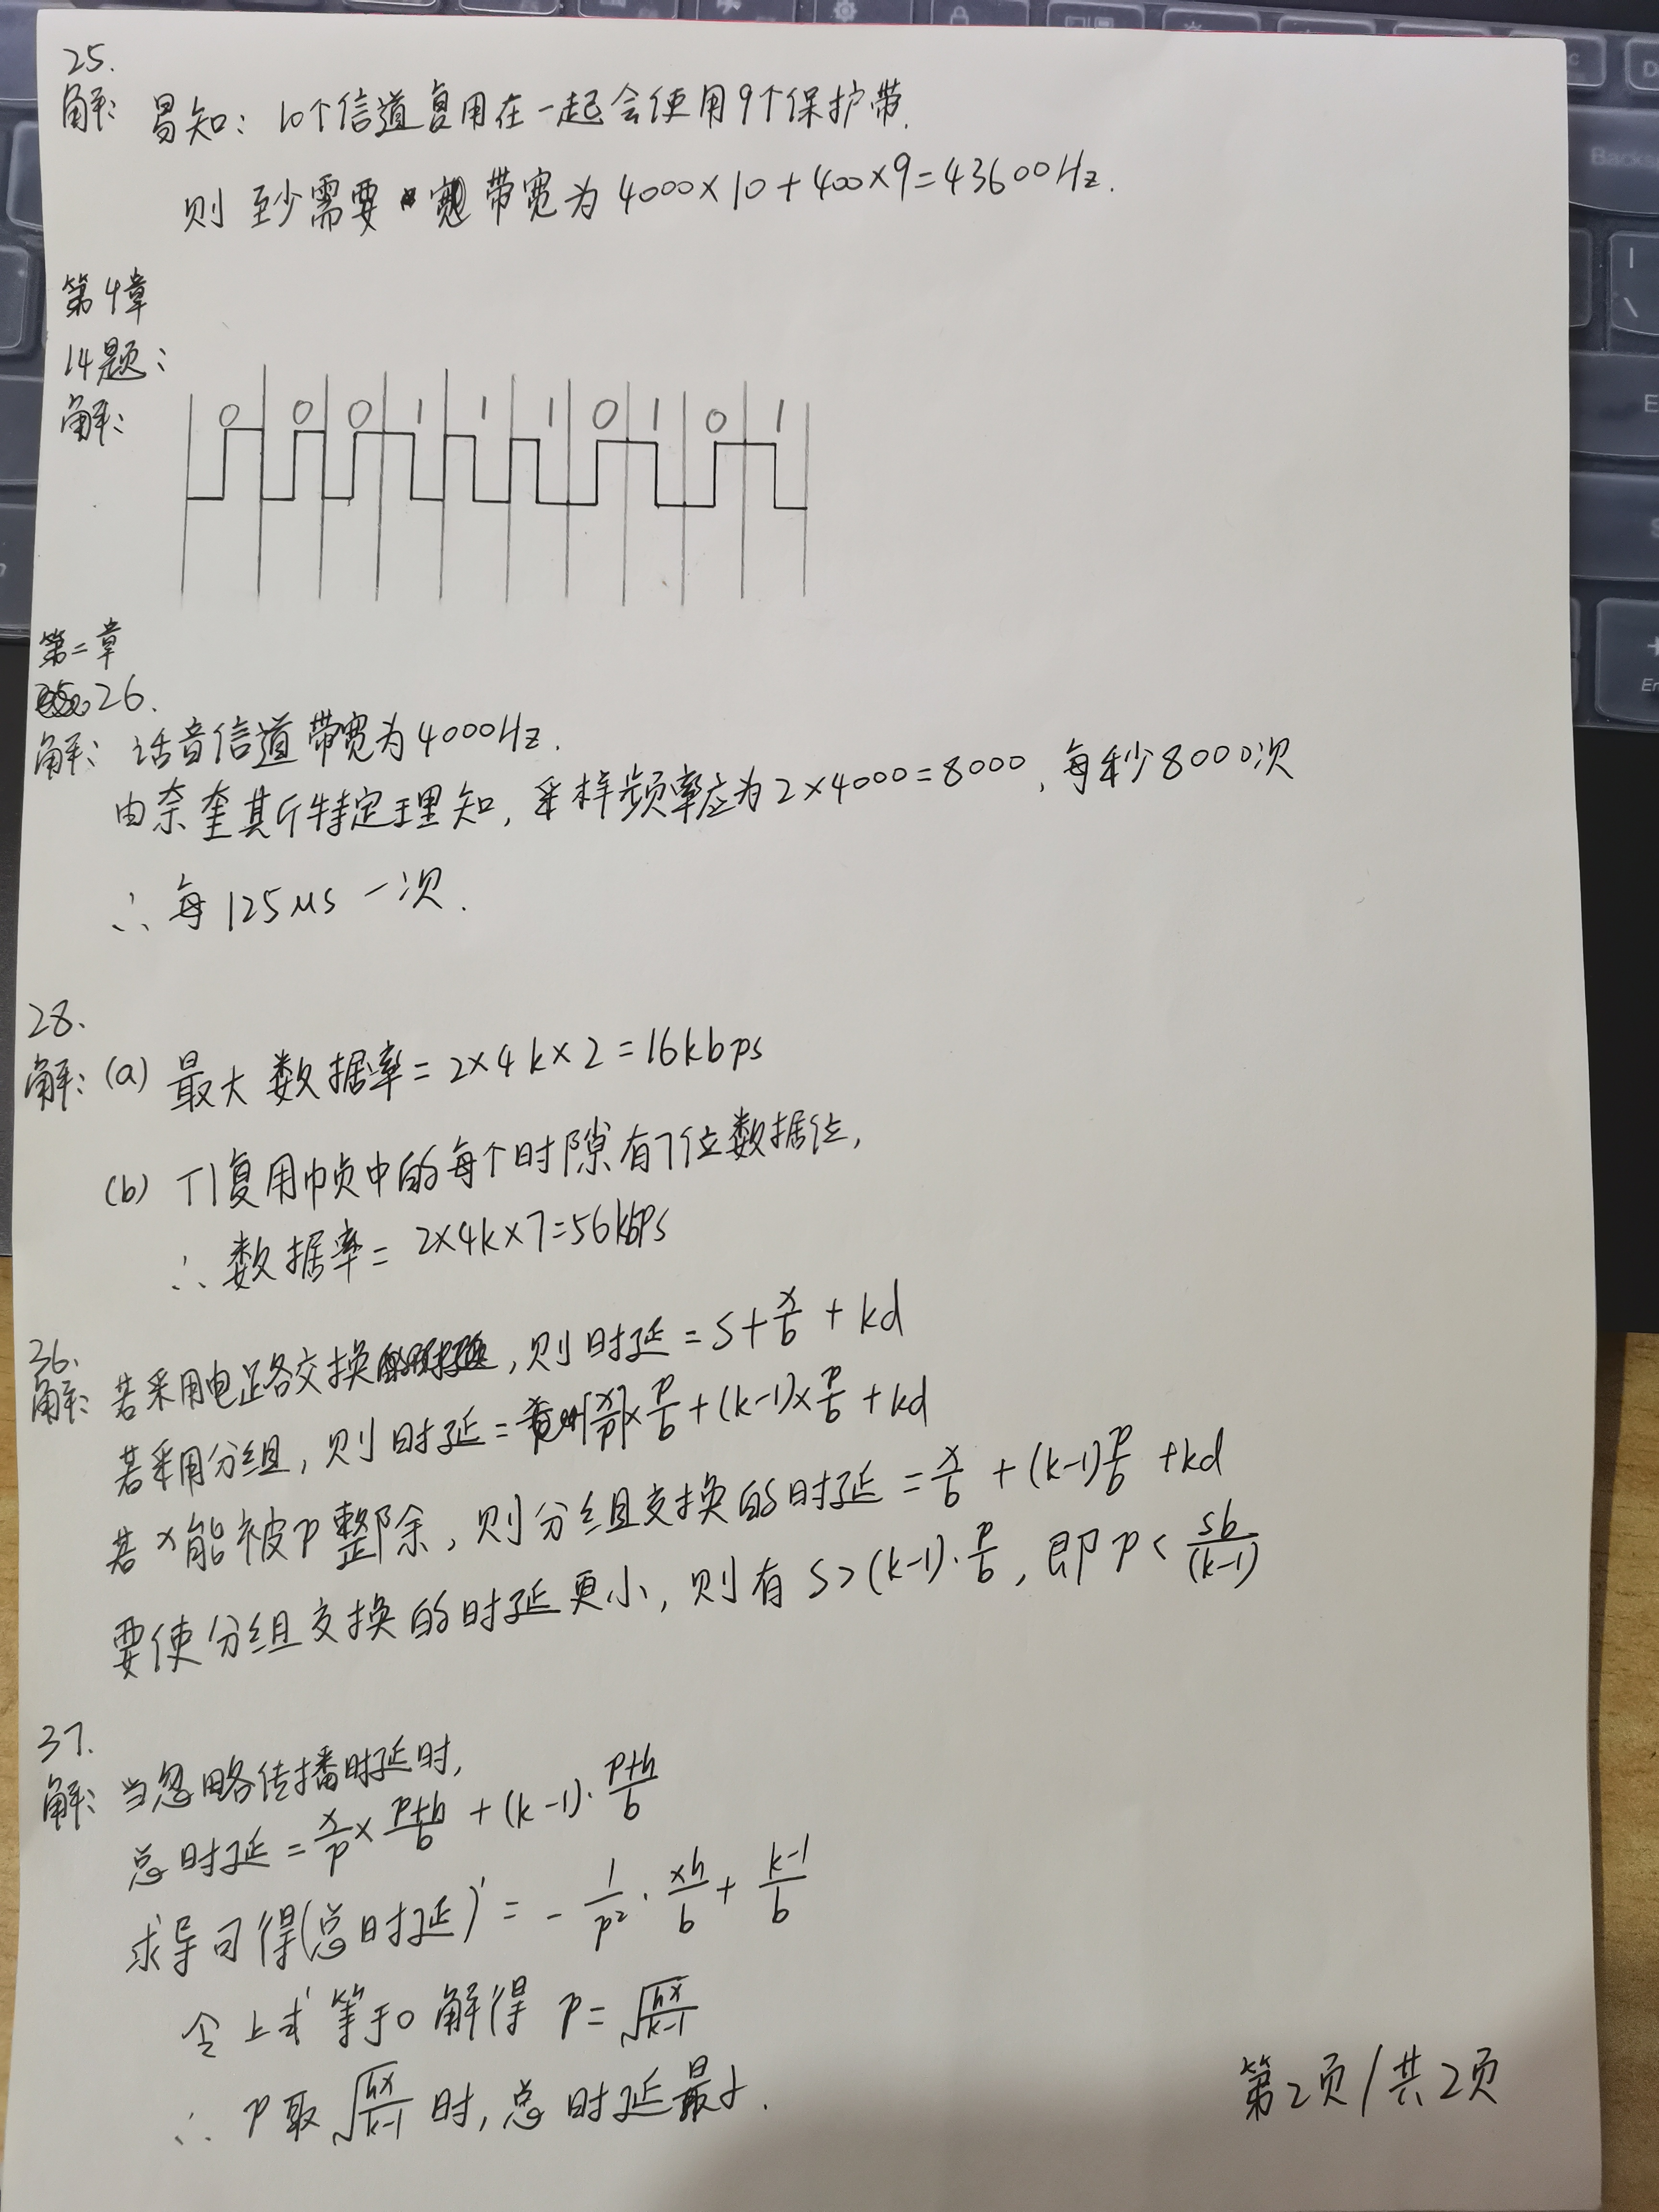 25.
解: 易知: 10个信道复用在一起会使用9个保护带.
则 至少需要 带宽为 4000×10+400×9=43600Hz.
第4章
14题:
解:
0 0 0 1 1 1 0 1 0 1
第二章
26.
解: 话音信道带宽为4000Hz.
由奈奎斯特定理知, 采样频率应为2×4000=8000, 每秒8000次
∴ 每125μs一次.
28.
解: (a) 最大数据率=2×4k×2=16kbps
(b) T1复用帧中的每个时隙有7位数据位,
∴ 数据率= 2×4k×7=56kbps
36.
解: 若采用电路交换, 则时延=s+x/b+kd
若采用分组, 则时延=[x/p]×p/b+(k-1)×p/b+kd
若x能被p整除, 则分组交换的时延=x/b+(k-1)p/b+kd
要使分组交换的时延更小, 则有s>(k-1)·p/b, 即p<sb/(k-1)
37.
解: 当忽略传播时延时,
总时延=x/p×(p+h)/b+(k-1)·(p+h)/b
求导可得(总时延)'=-1/p²·xh/b+(k-1)/b
令上式等于0 解得 p=√(hx/(k-1))
∴ p取√(hx/(k-1))时, 总时延最小.
第2页/共2页